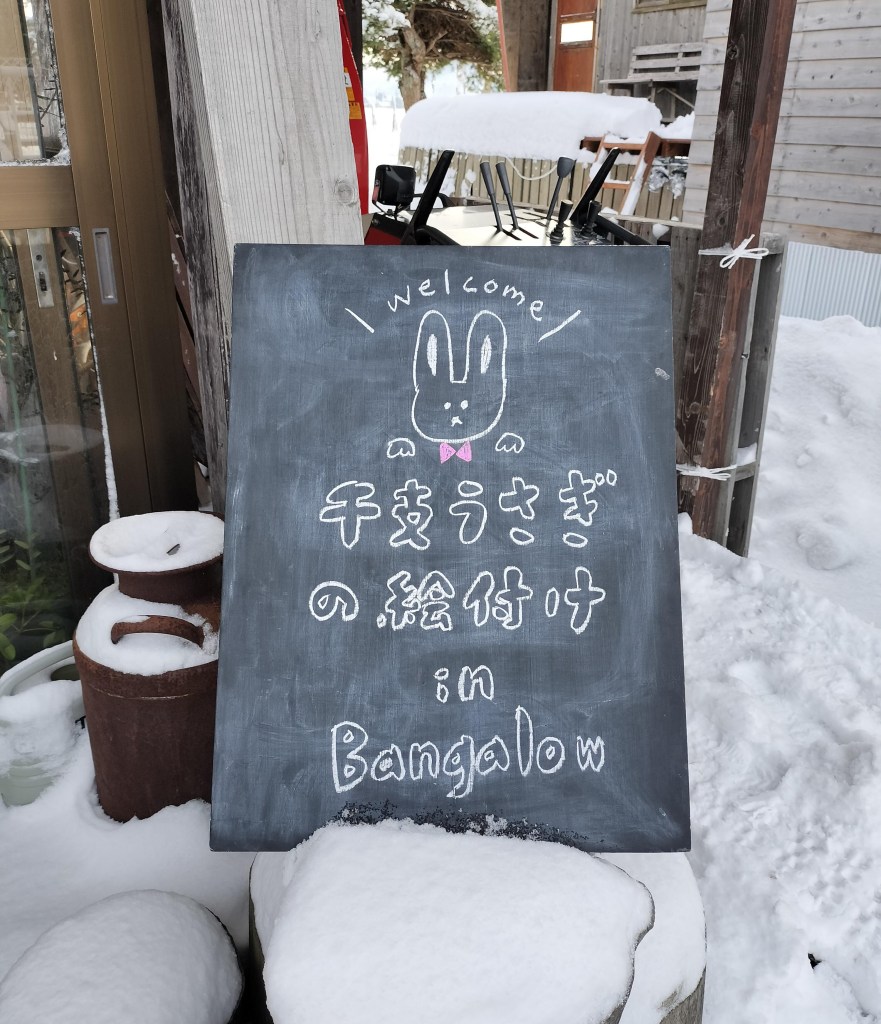 \ welcome /
干支うさぎ
の絵付け
in
Bangalow